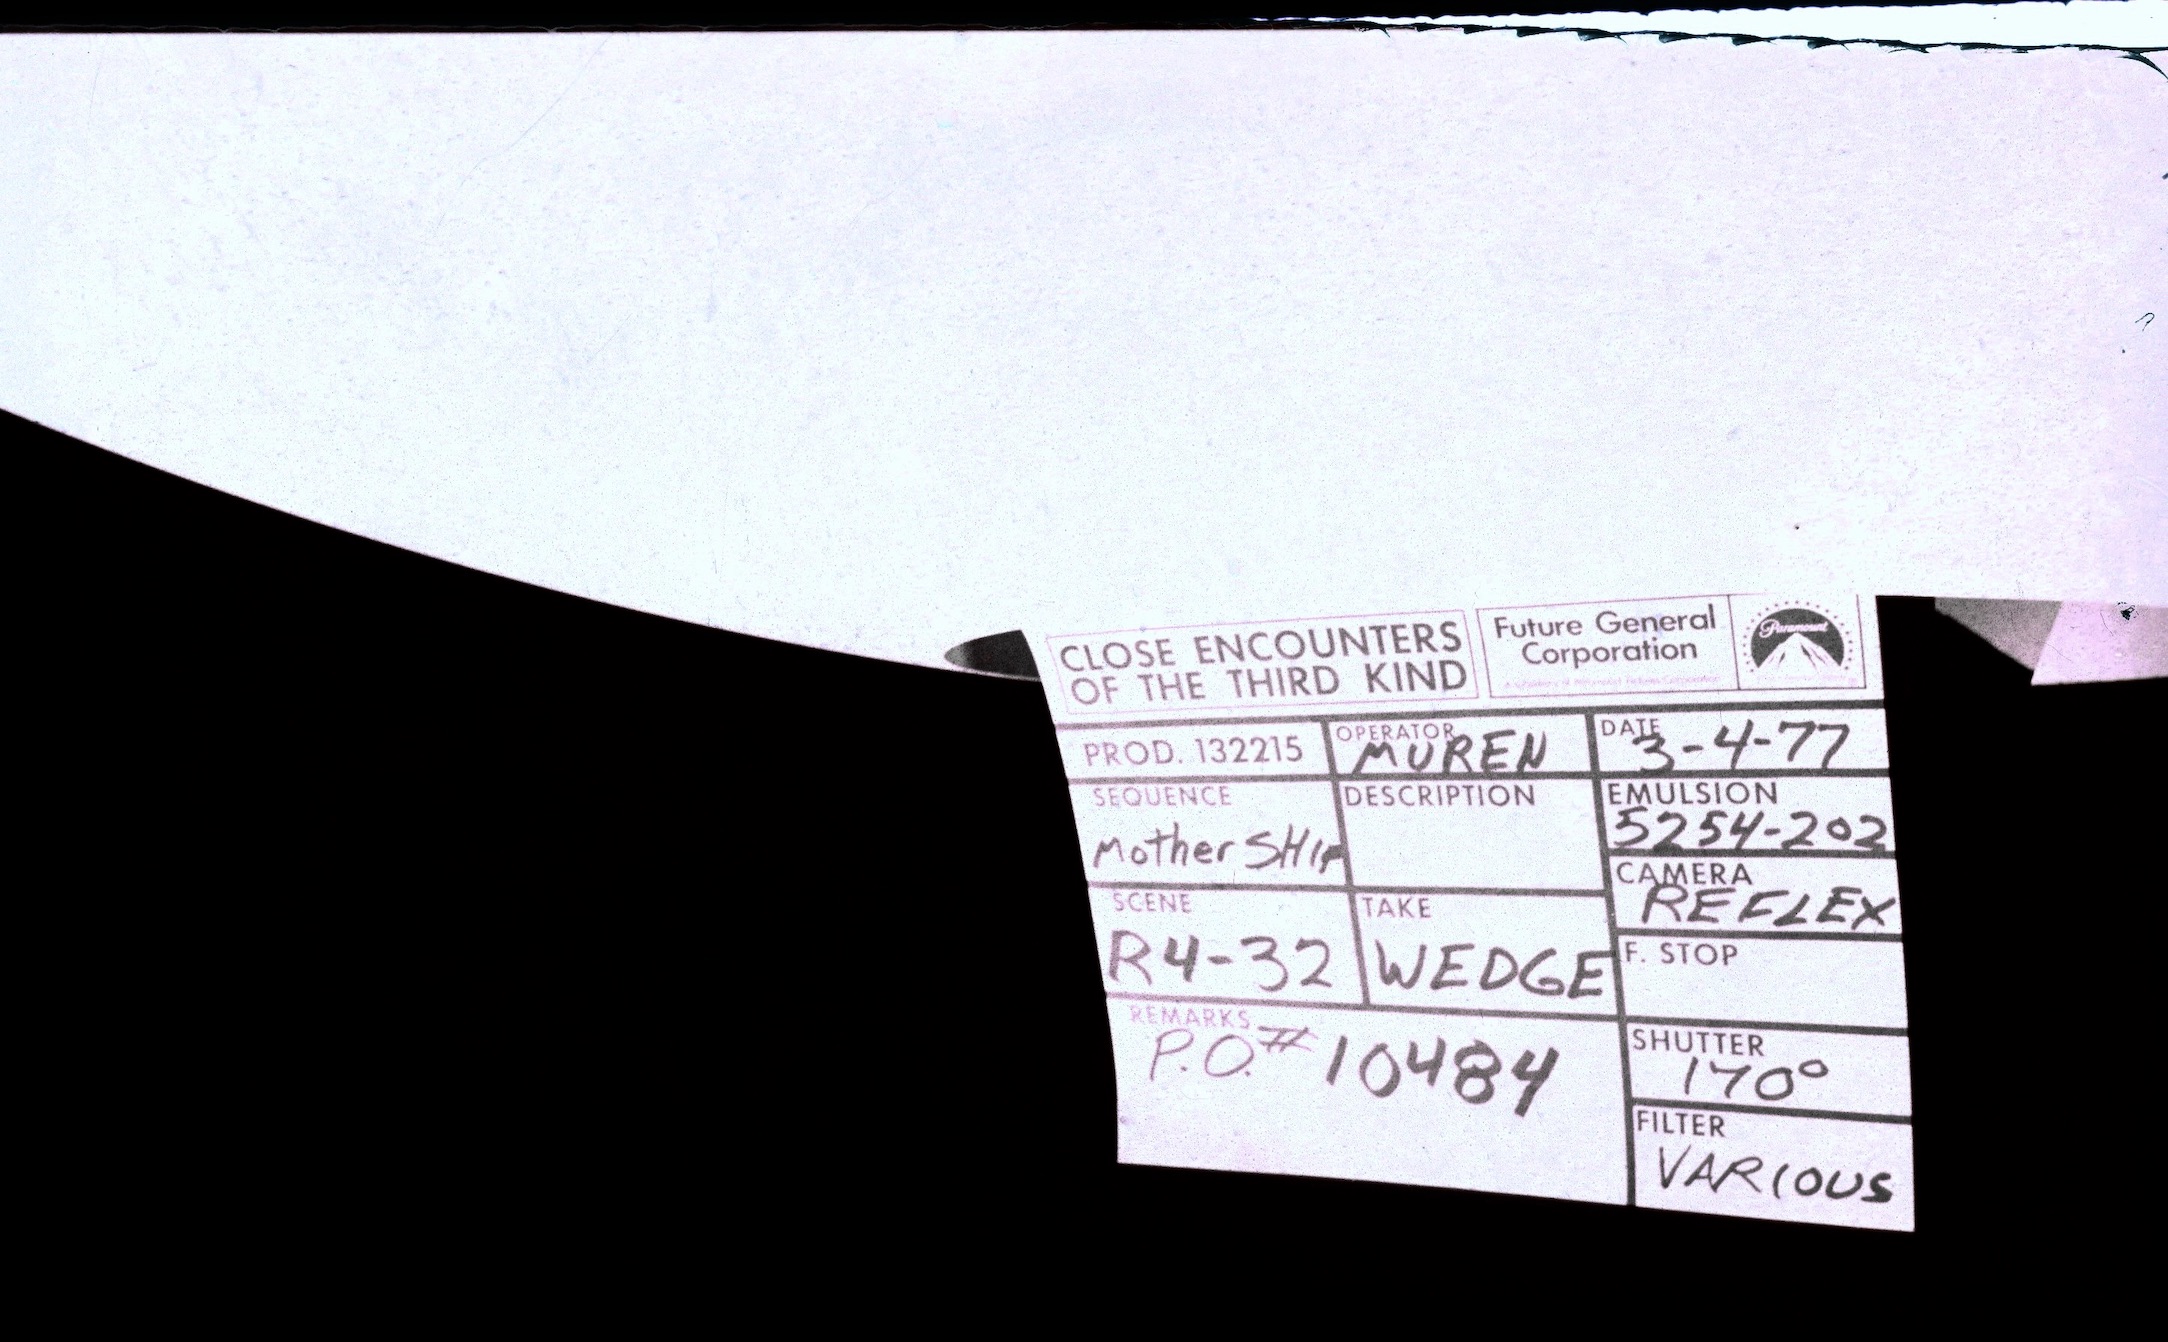 CLOSE ENCOUNTERS
OF THE THIRD KIND
Future General
Corporation
Paramount
PROD. 132215
OPERATOR
MUREN
DATE
3-4-77
SEQUENCE
Mother SHIP
DESCRIPTION
EMULSION
5254-202
CAMERA
REFLEX
SCENE
R4-32
TAKE
WEDGE
F. STOP
REMARKS
P.O.# 10484
SHUTTER
170°
FILTER
VARIOUS